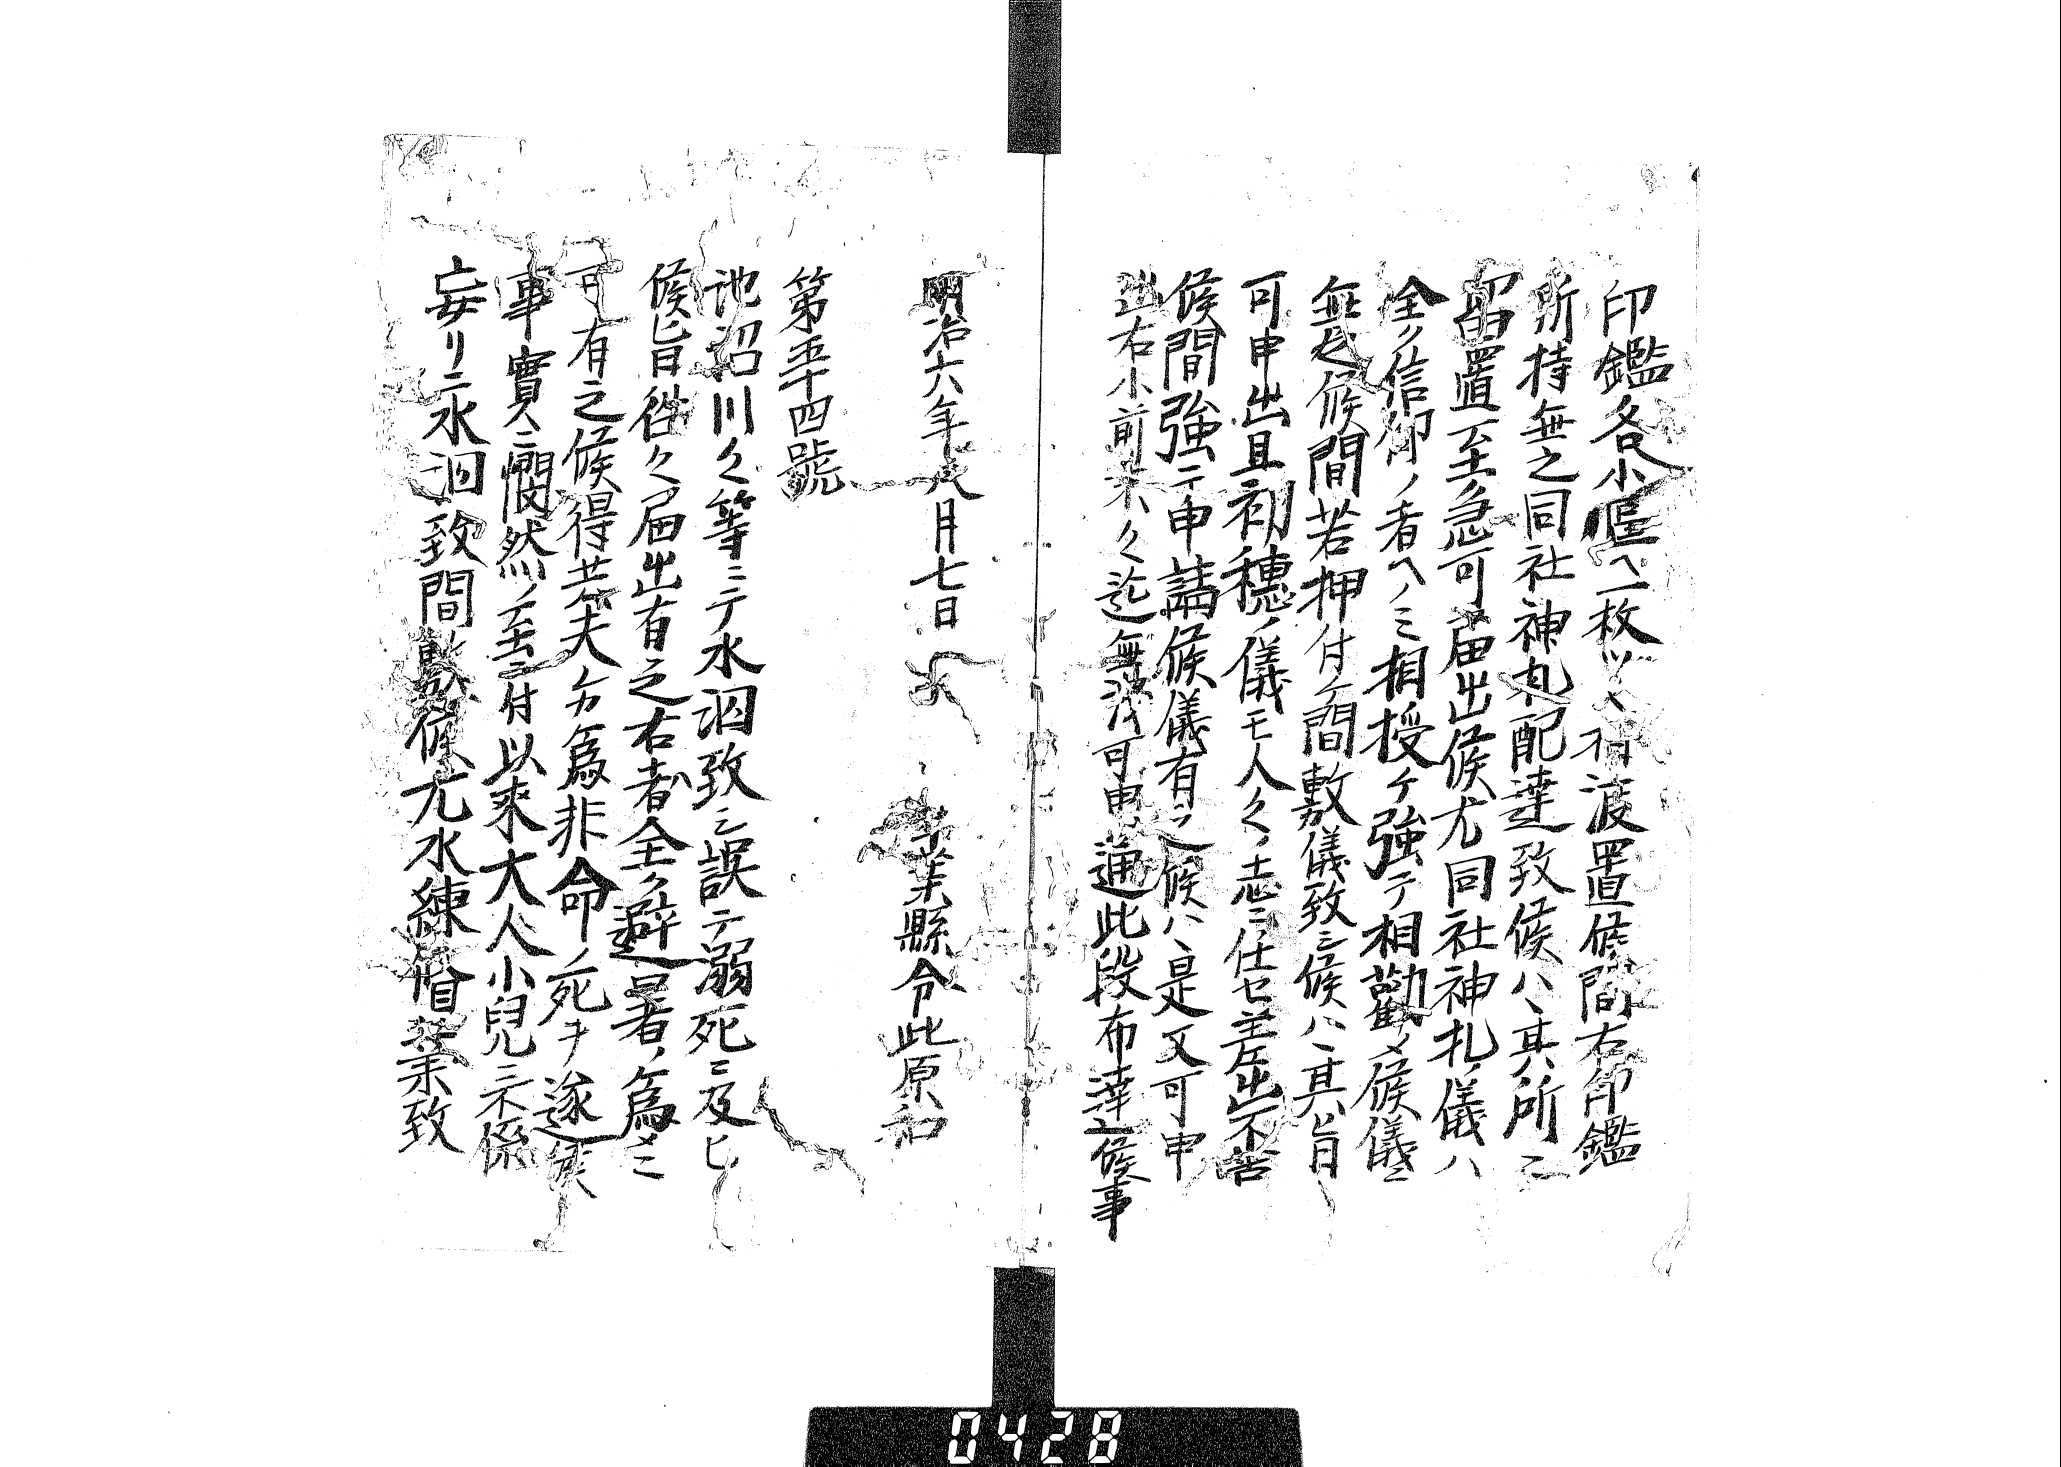 印鑑各小區ヘ一枚ツヽ相渡置候間右印鑑
所持無之同社神札配達致候ハヽ其所ニ
留置至急可届出候尤同社神札ノ儀ハ
全ク信仰ノ者ヘノミ相授ケ強テ相勸メ候儀ニ
無之候間若押付ケ間敷儀致シ候ハヽ其旨
可申出且初穂ノ儀モ人々ノ志ニ仕セ差出不苦
候間強テ申諭候儀有之候ハヽ是又可申
出右小前末々迄無洩可申通此段布達候事
明治六年八月七日
千葉縣令柴原和
第五十四號
池沼川々等ニテ水泅致シ誤テ溺死ニ及ヒ
候旨往々届出有之右者全ク避暑ノ為ニ
可有之候得共夫カ為非命ノ死ヲ遂候
事實ニ憫然ノ至ニ付以来大人小兒ニ不係
妄リニ水泅致間敷候尤水練習業致
0428